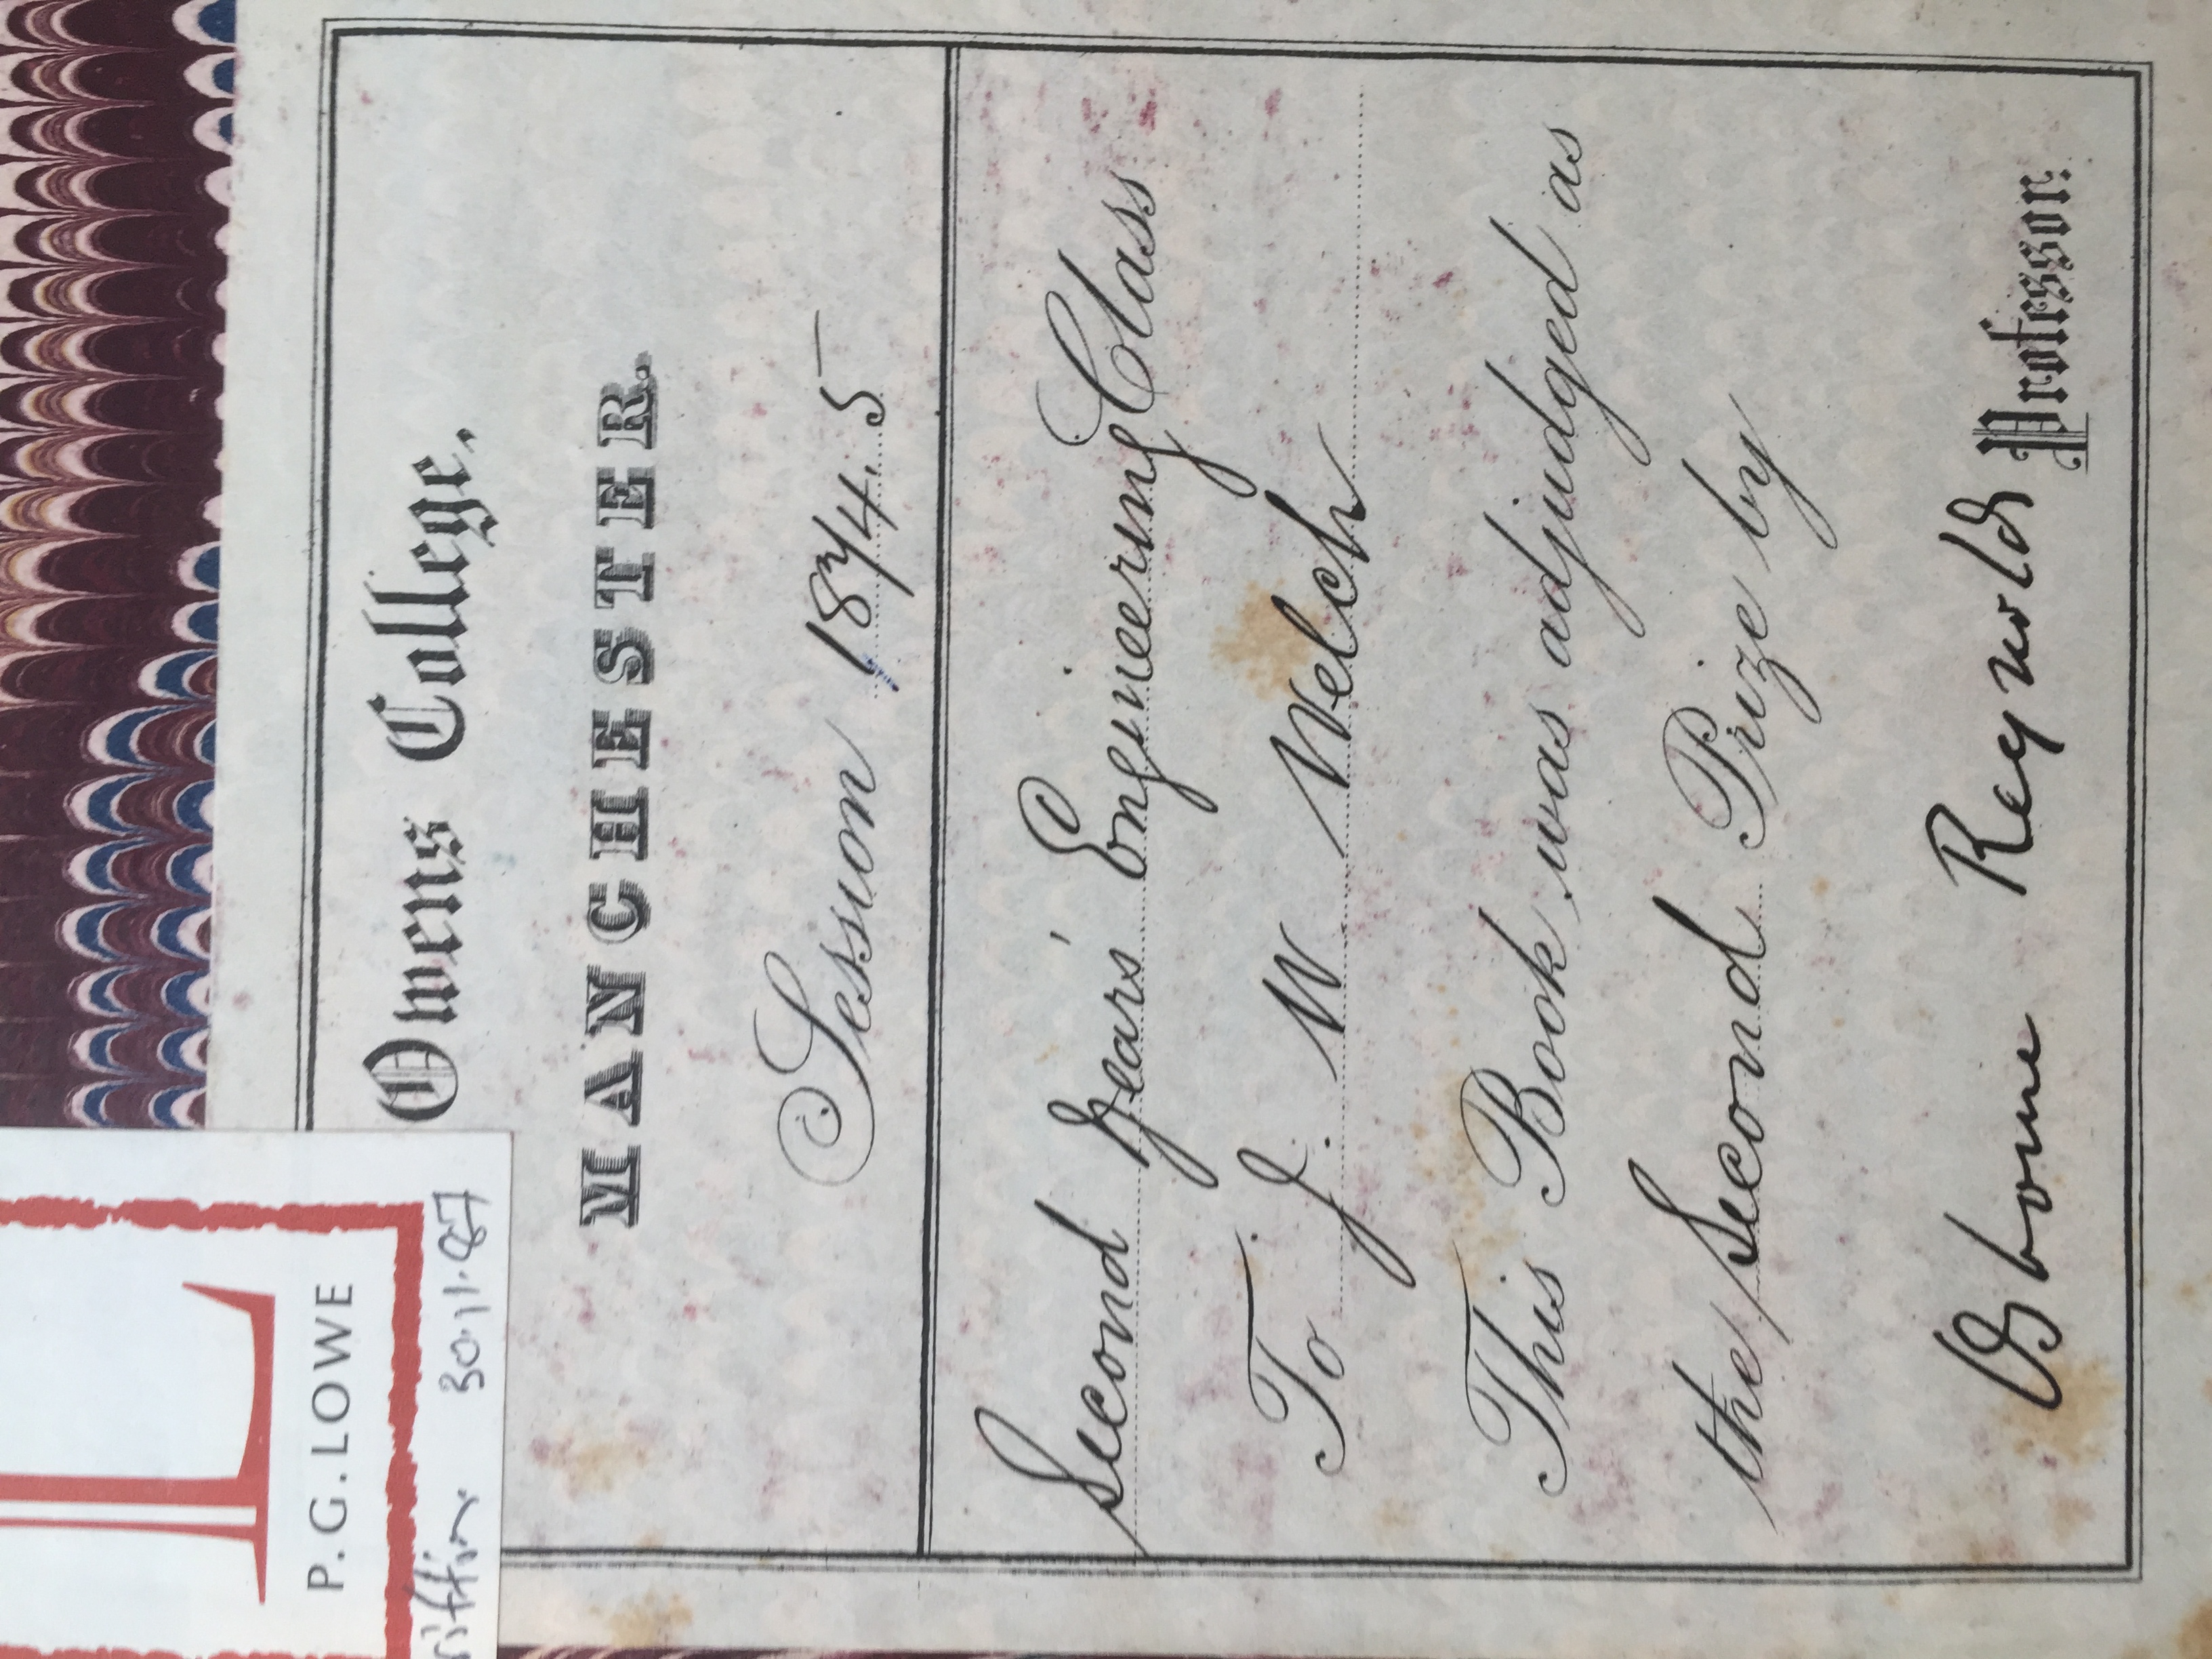 Owens College,
MANCHESTER.
Session 1874.5
Second Years' Engineering Class
To J. W Welch
This Book was adjudged as
the Second Prize by
Osborne Reynolds Professor.
L
P.G.LOWE
30.11.87